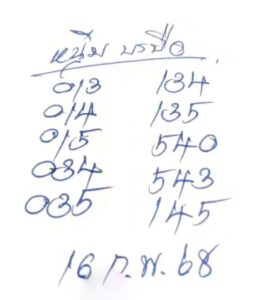 หนุ่ม บรบือ
013 134
014 135
015 540
034 543
035 145
16 ก.พ. 68